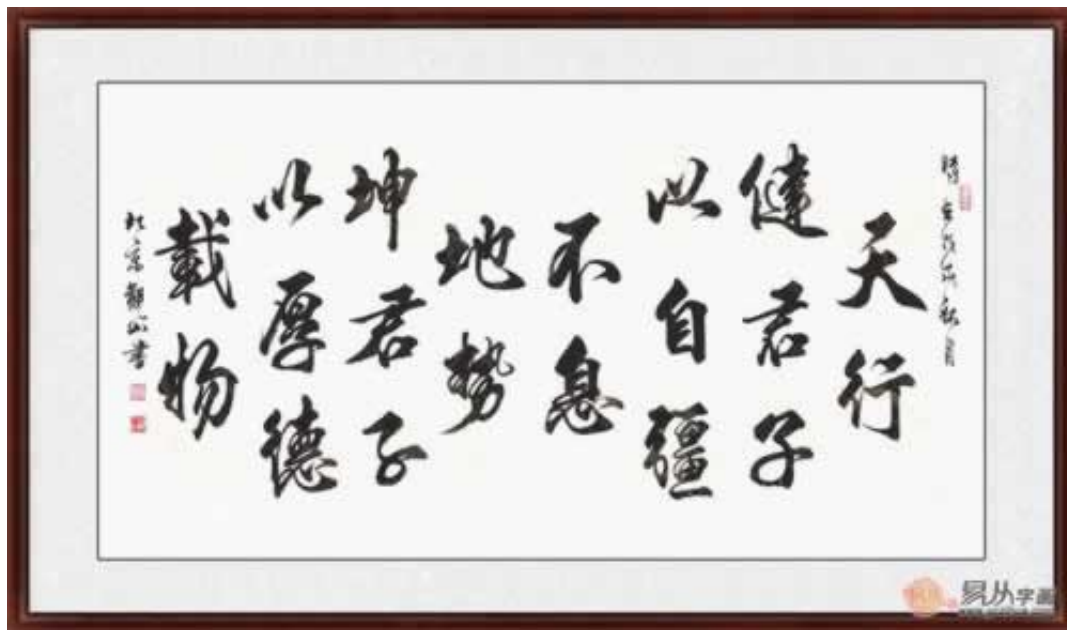 天行
健君子
以自彊
不息
地勢
坤君子
以厚德
載物
書
易从字画